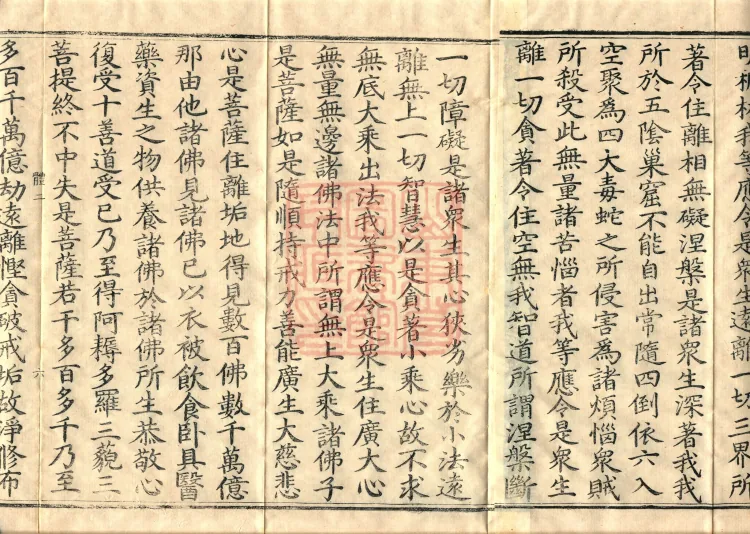 我等應令是衆生遠離一切三界所
著令住離相無礙涅槃是諸衆生深著我我
所於五陰巢窟不能自出常隨四倒依六入
空聚為四大毒蛇之所侵害為諸煩惱衆賊
所殺受此無量諸苦惱者我等應令是衆生
離一切貪著令住空無我智道所謂涅槃斷
一切障礙是諸衆生其心狹劣樂於小法遠
離無上一切智慧以是貪著小乘心故不求
無底大乘出法我等應令是衆生住廣大心
無量無邊諸佛法中所謂無上大乘諸佛子
是菩薩如是隨順持戒力善能廣生大慈悲
心是菩薩住離垢地得見數百佛數千萬億
那由他諸佛見諸佛已以衣被飲食臥具醫
藥資生之物供養諸佛於諸佛所生恭敬心
復受十善道受已乃至得阿耨多羅三藐三
菩提終不中失是菩薩若干多百多千乃至
體二 六
多百千萬億劫遠離慳貪破戒垢故淨修布